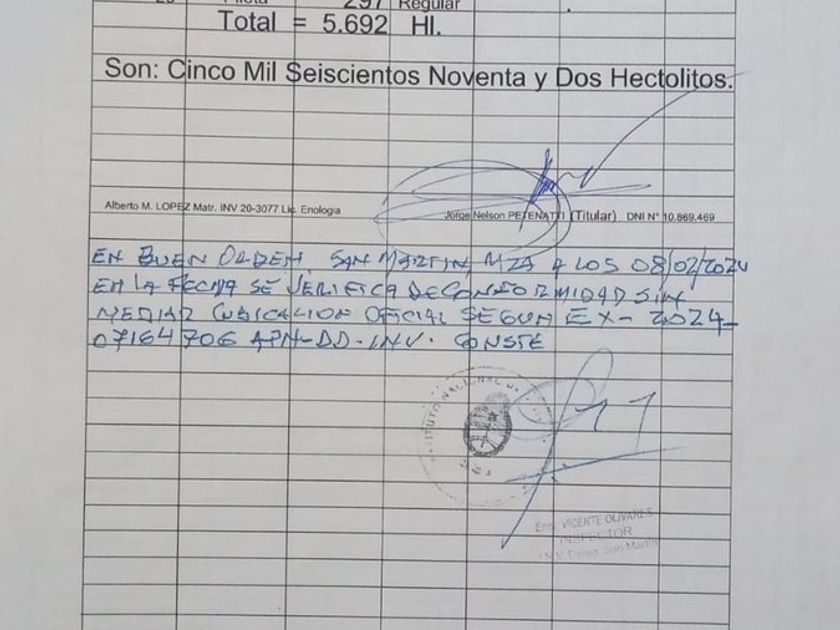 297 Regular
Total = 5.692 Hl.
Son: Cinco Mil Seiscientos Noventa y Dos Hectolitos.
Alberto M. LOPEZ Matr. INV 20-3077 Lic. Enologia
Jorge Nelson PETENATTI (Titular) DNI N° 10.869.469
EN BUEN ORDEN, SAN MARTIN, MZA A LOS 08/02/2024
EN LA FECHA SE VERIFICA DE CONFORMIDAD SIN
MEDIAR CUBICACION OFICIAL SEGUN EX-2024-
07164706 APN-DD-INV. CONSTE
INSTITUTO NACIONAL DE
VICENTE OLIVARES
INSPECTOR
San Martin